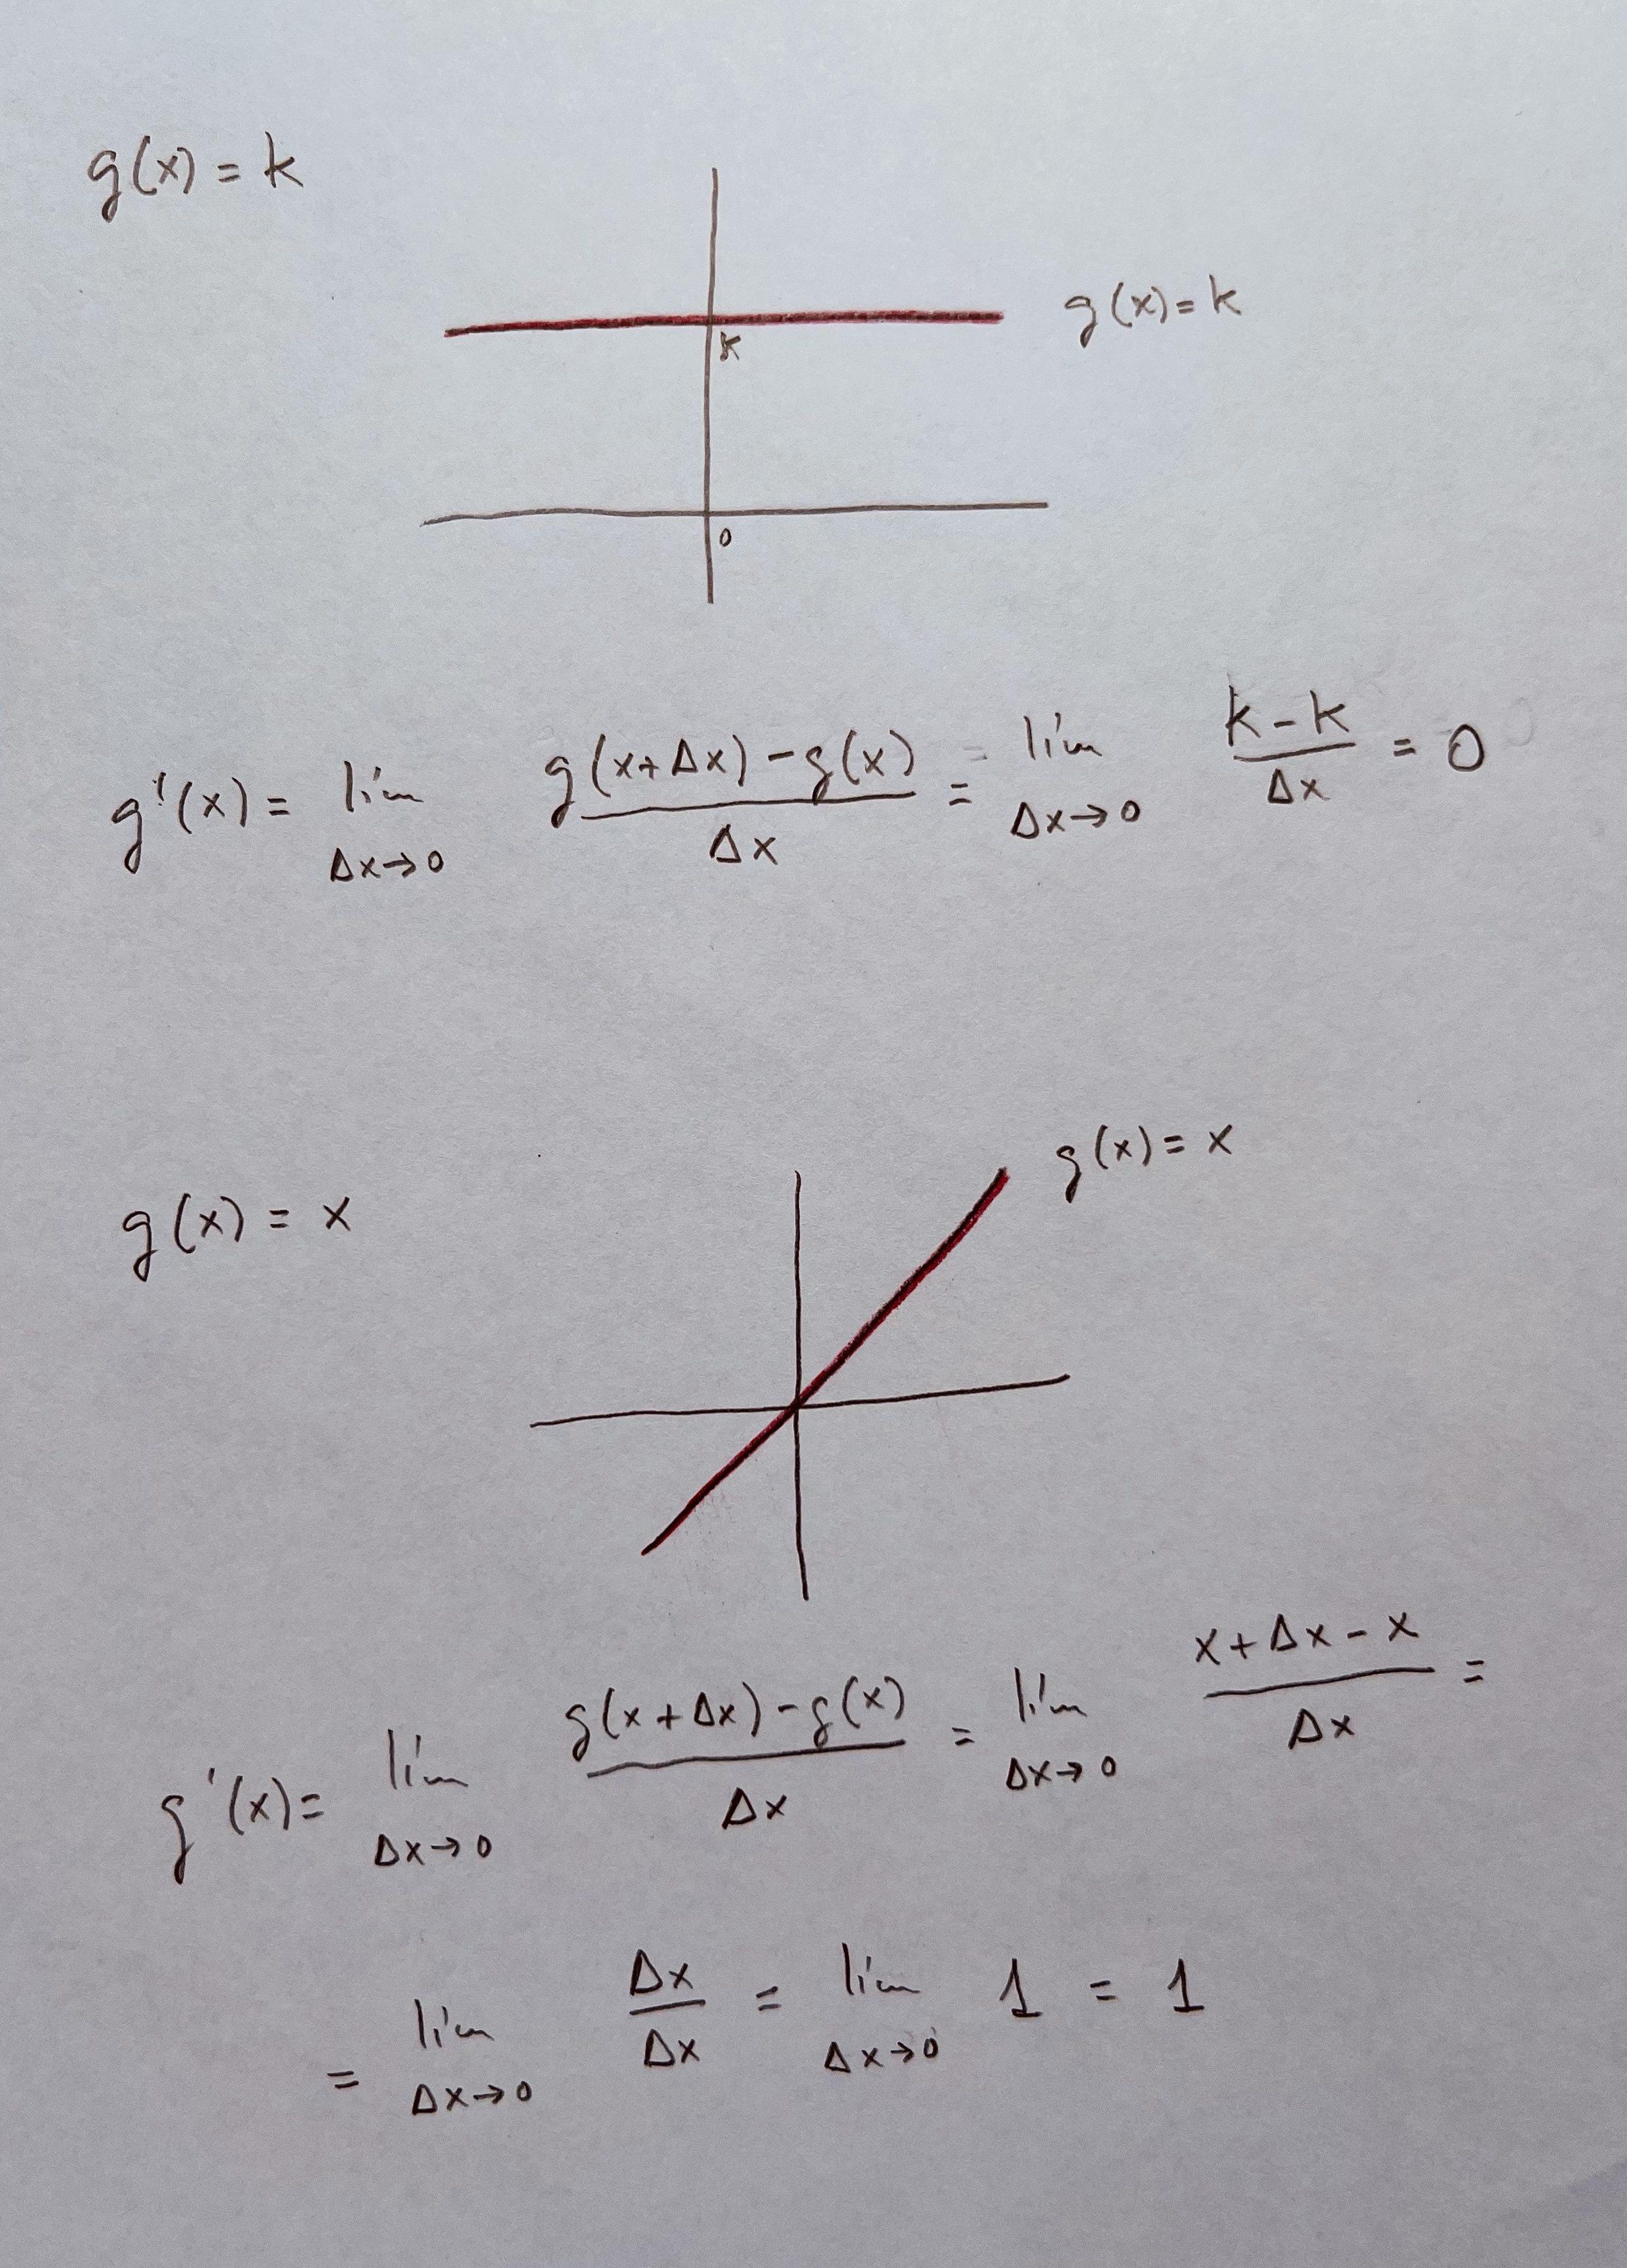 g(x) = k
g(x) = k
k
0
g'(x) = lím Δx→0 g(x+Δx) - g(x) / Δx = lím Δx→0 k - k / Δx = 0
g(x) = x
g(x) = x
g'(x) = lím Δx→0 g(x+Δx) - g(x) / Δx = lím Δx→0 x+Δx - x / Δx =
= lím Δx→0 Δx / Δx = lím Δx→0 1 = 1